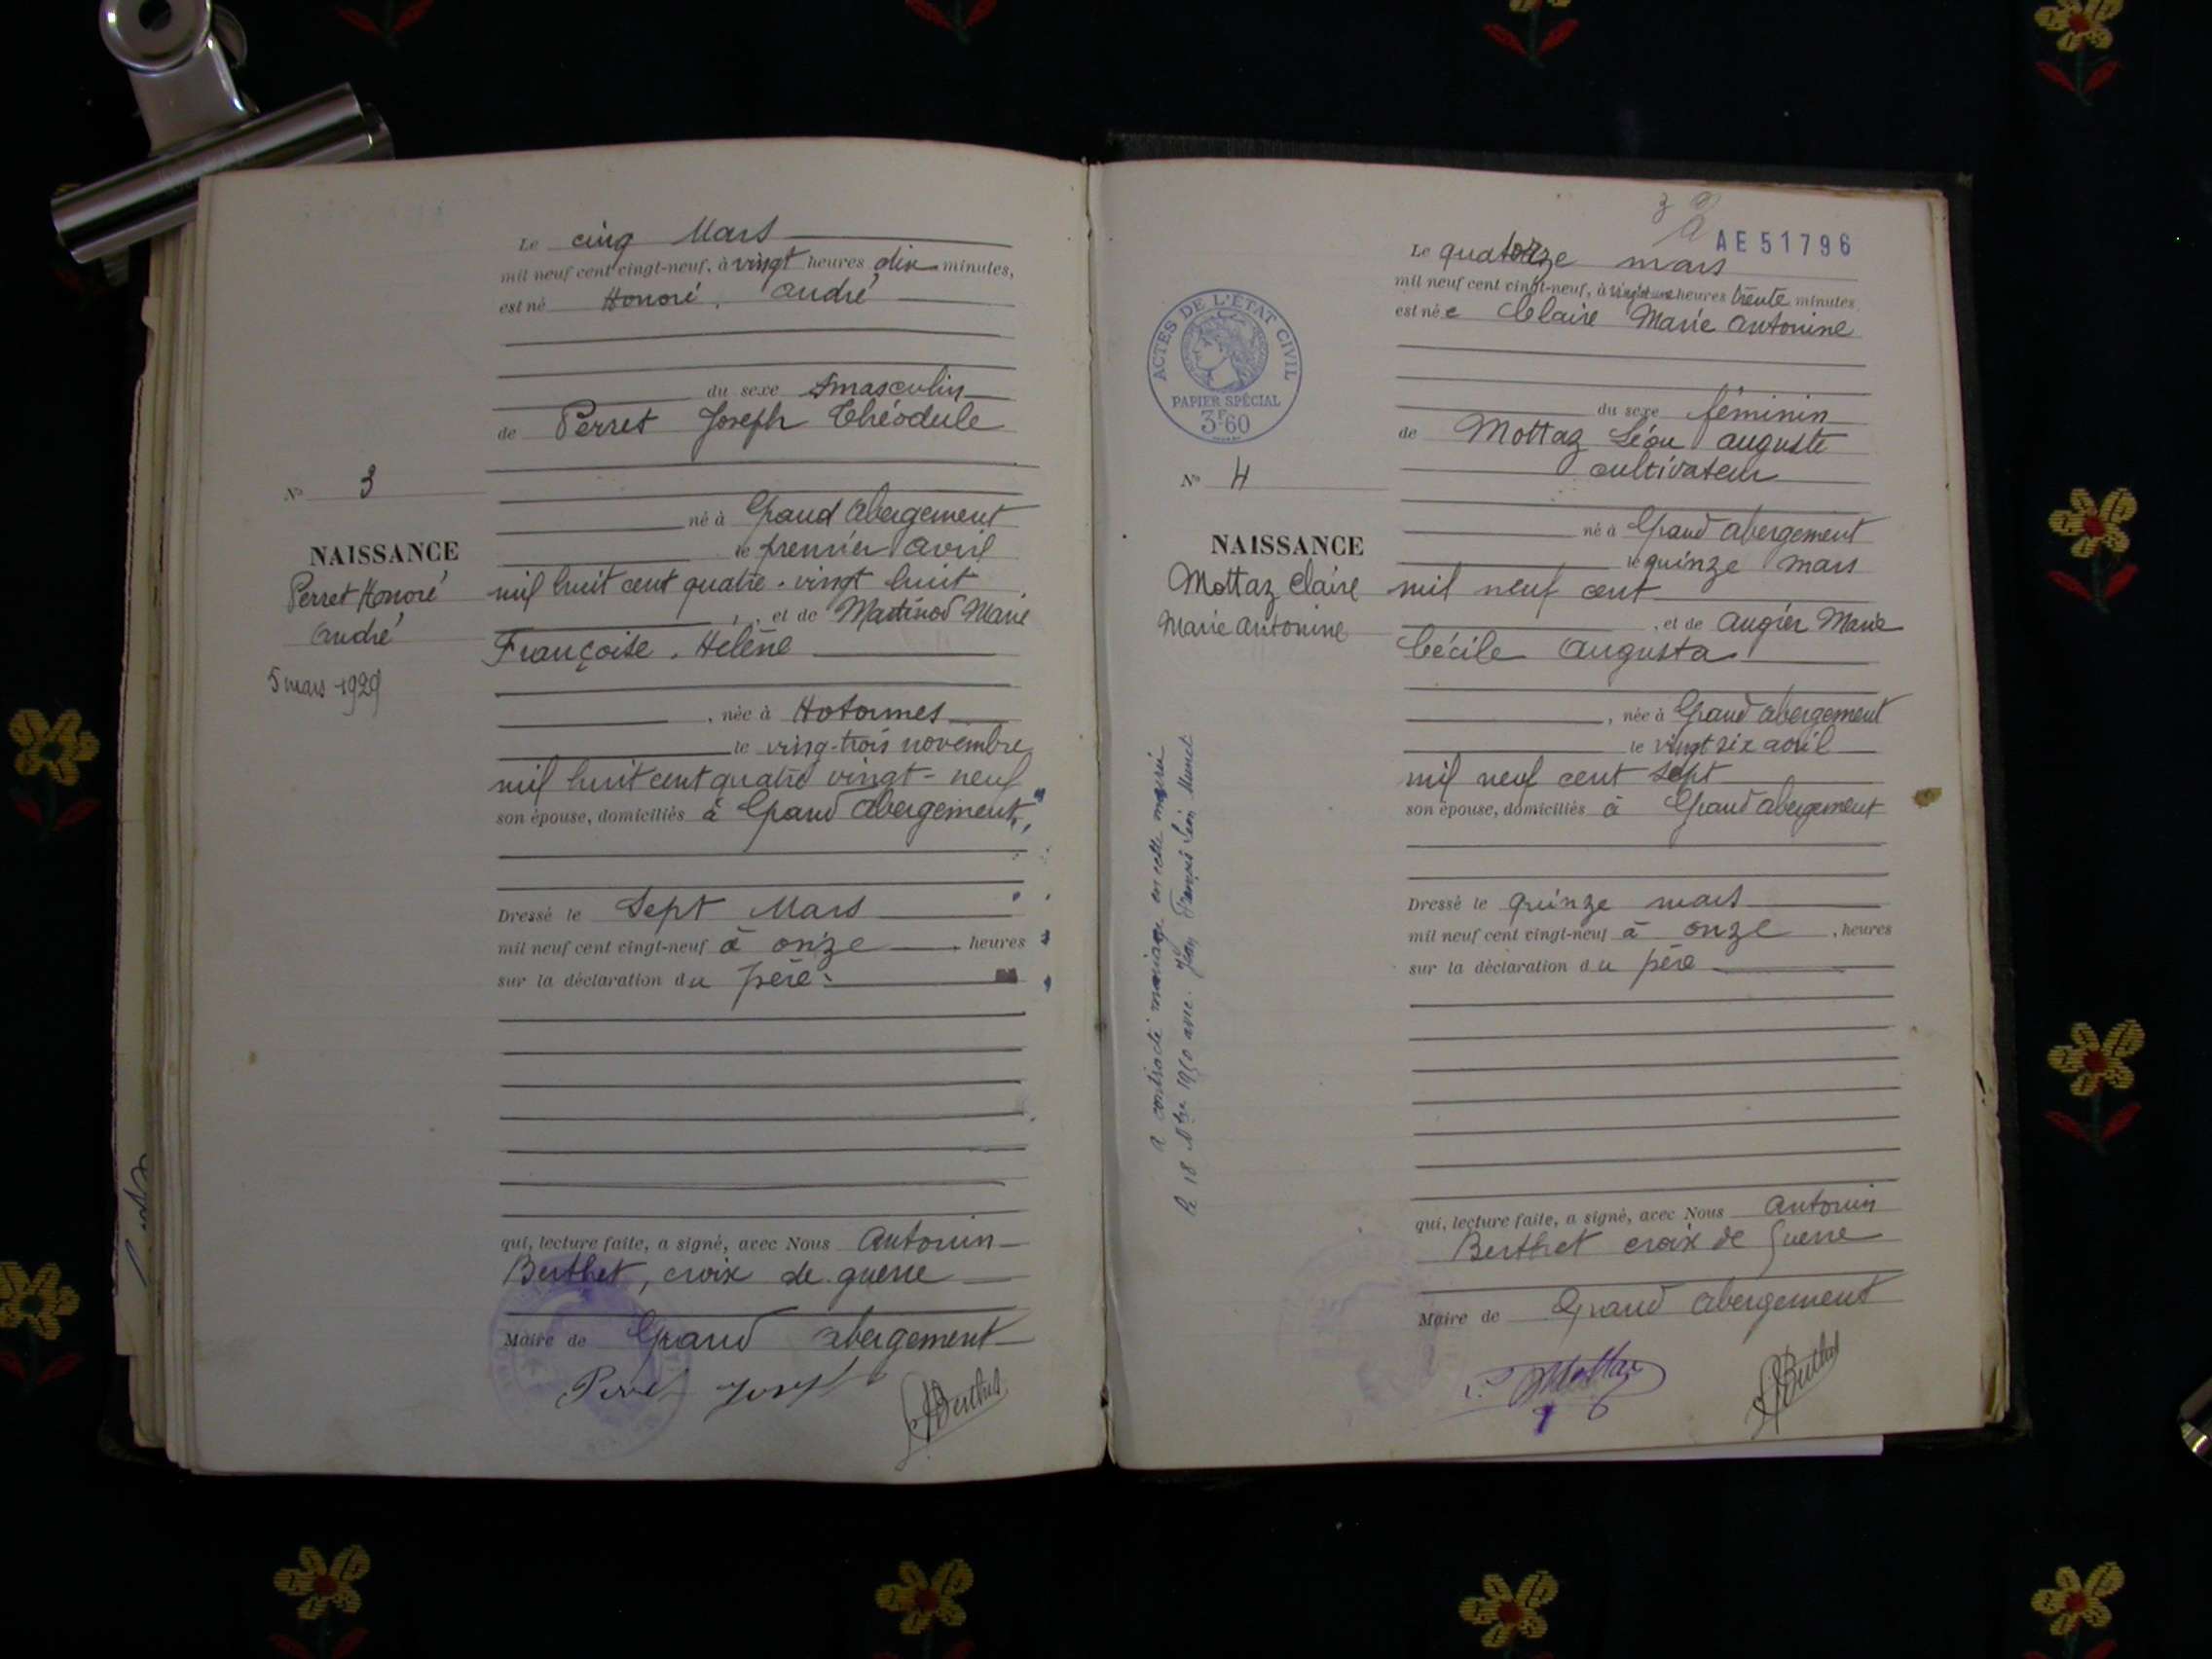 Le cinq Mars
mil neuf cent vingt-neuf, à vingt heures dix minutes,
est né Honoré, André
du sexe masculin
de Perret Joseph Théodule
N° 3
né à Grand Abergement
NAISSANCE
le premier avril
Perret Honoré
mil huit cent quatre-vingt huit
André
, et de Martinod Marie
Françoise, Helène
5 mars 1929
, née à Hotonnes
le vingt-trois novembre
mil huit cent quatre vingt-neuf
son épouse, domiciliés à Grand Abergement,
Dressé le Sept Mars
mil neuf cent vingt-neuf à onze, heures
sur la déclaration du père.
qui, lecture faite, a signé, avec Nous Antonin
Berthet, croix de guerre
Maire de Grand abergement
Perret Joseph
ABerthet
AE51796
Le quatorze mars
mil neuf cent vingt-neuf, à vingt une heures trente minutes
est née Claire Marie Antonine
ACTES DE L'ÉTAT CIVIL
PAPIER SPÉCIAL
3F60
du sexe féminin
de Mottaz Léon Auguste
cultivateur
N° 4
né à Grand abergement
NAISSANCE
le quinze mars
Mottaz Claire
mil neuf cent
Marie Antonine
, et de Augier Marie
Cécile Augusta
, née à Grand abergement
le vingt six avril
mil neuf cent sept
son épouse, domiciliés à Grand abergement
A contracté mariage en cette mairie
le 18 Nbre 1950 avec Jean François Léon
Dressé le quinze mars
mil neuf cent vingt-neuf à onze, heures
sur la déclaration du père
qui, lecture faite, a signé, avec Nous Antonin
Berthet croix de guerre
Maire de Grand abergement
L. Mottaz
ABerthet